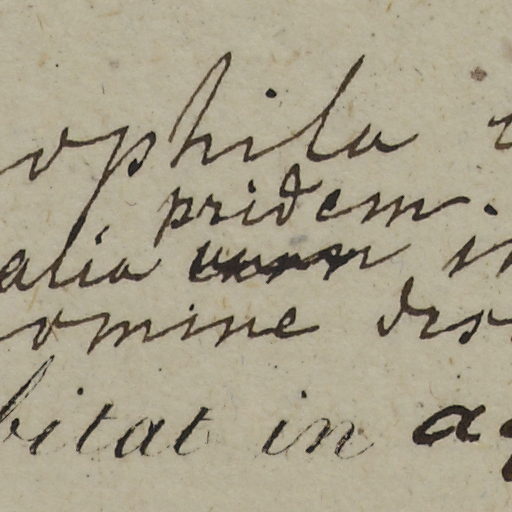 ophila
pridem.
alia
omine des
bitat in aq